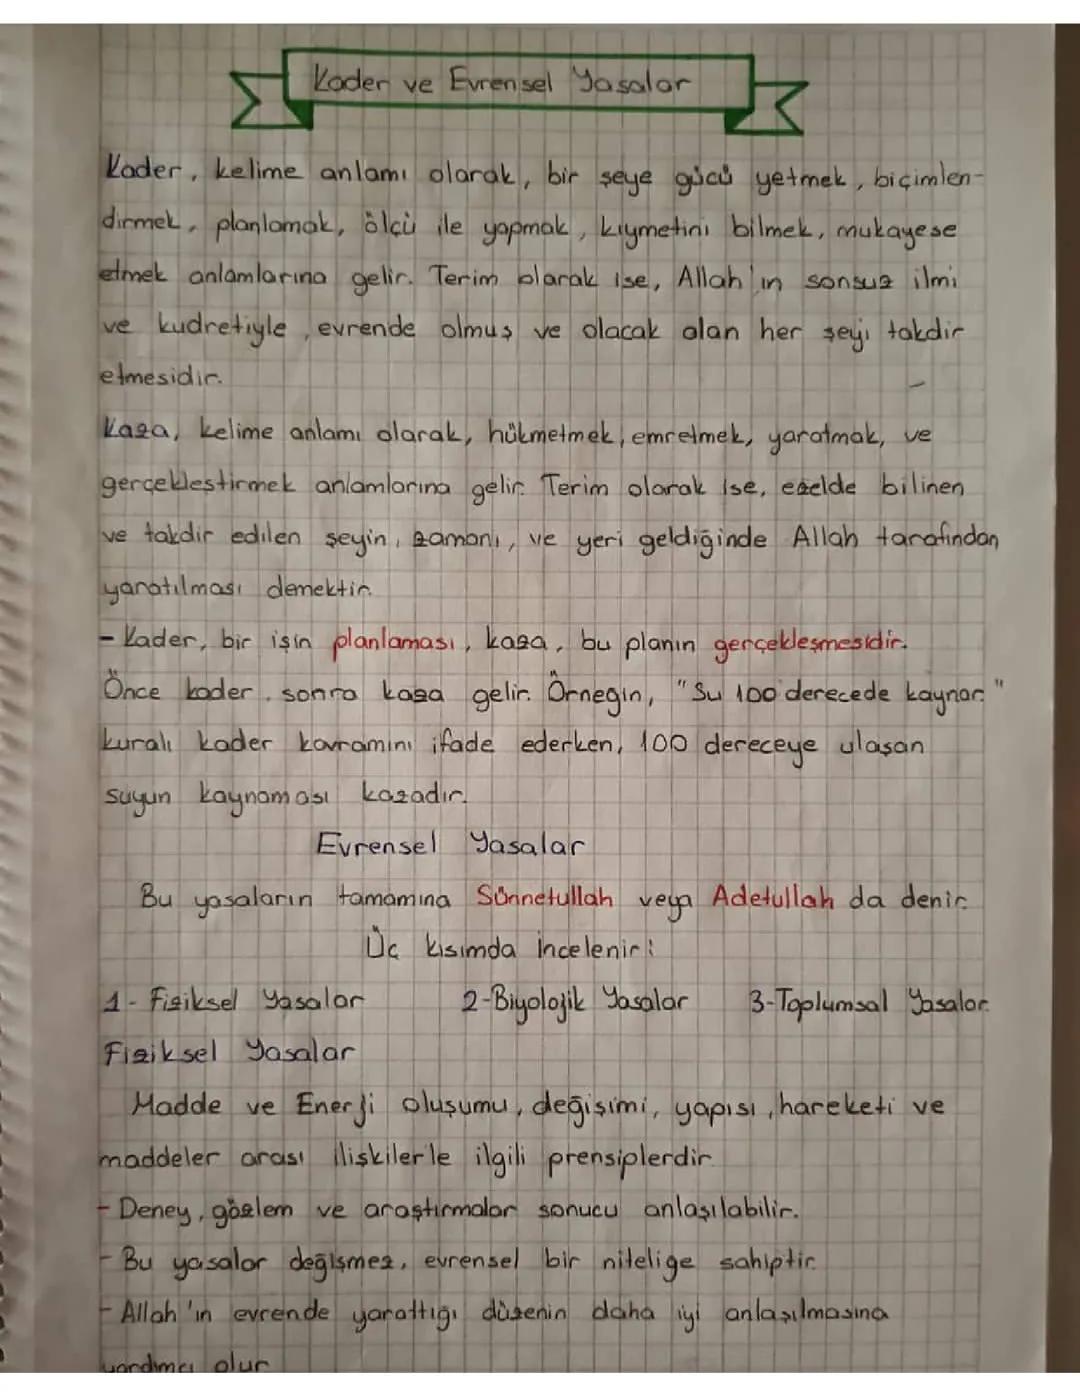 Kader ve Evrensel Yasalar
Kader, kelime anlamı olarak, bir şeye gücü yetmek, biçimlen-
dirmek, planlamak, ölçü ile yapmak, kıymetini bilmek, mukayese
etmek anlamlarına gelir. Terim olarak ise, Allah'ın sonsuz ilmi
ve kudretiyle, evrende olmuş ve olacak olan her şeyi takdir
etmesidir.
Kaza, kelime anlamı olarak, hükmetmek, emretmek, yaratmak, ve
gerçekleştirmek anlamlarına gelir. Terim olarak ise, ezelde bilinen
ve takdir edilen şeyin, zamanı, ve yeri geldiğinde Allah tarafından
yaratılması demektir.
- Kader, bir işin planlaması, kaza, bu planın gerçekleşmesidir.
Önce kader, sonra kaza gelir. Örneğin, "Su 100 derecede kaynar."
kuralı kader kavramını ifade ederken, 100 dereceye ulaşan
suyun kaynaması kazadır.
Evrensel Yasalar
Bu yasaların tamamına Sünnetullah veya Adetullah da denir.
Üç kısımda incelenir:
1- Fiziksel Yasalar 2-Biyolojik Yasalar 3-Toplumsal Yasalar.
Fiziksel Yasalar
Madde ve Enerji oluşumu, değişimi, yapısı, hareketi ve
maddeler arası ilişkilerle ilgili prensiplerdir.
- Deney, gözlem ve araştırmalar sonucu anlaşılabilir.
- Bu yasalar değişmez, evrensel bir niteliğe sahiptir.
- Allah'ın evrende yarattığı düzenin daha iyi anlaşılmasına
yardımcı olur